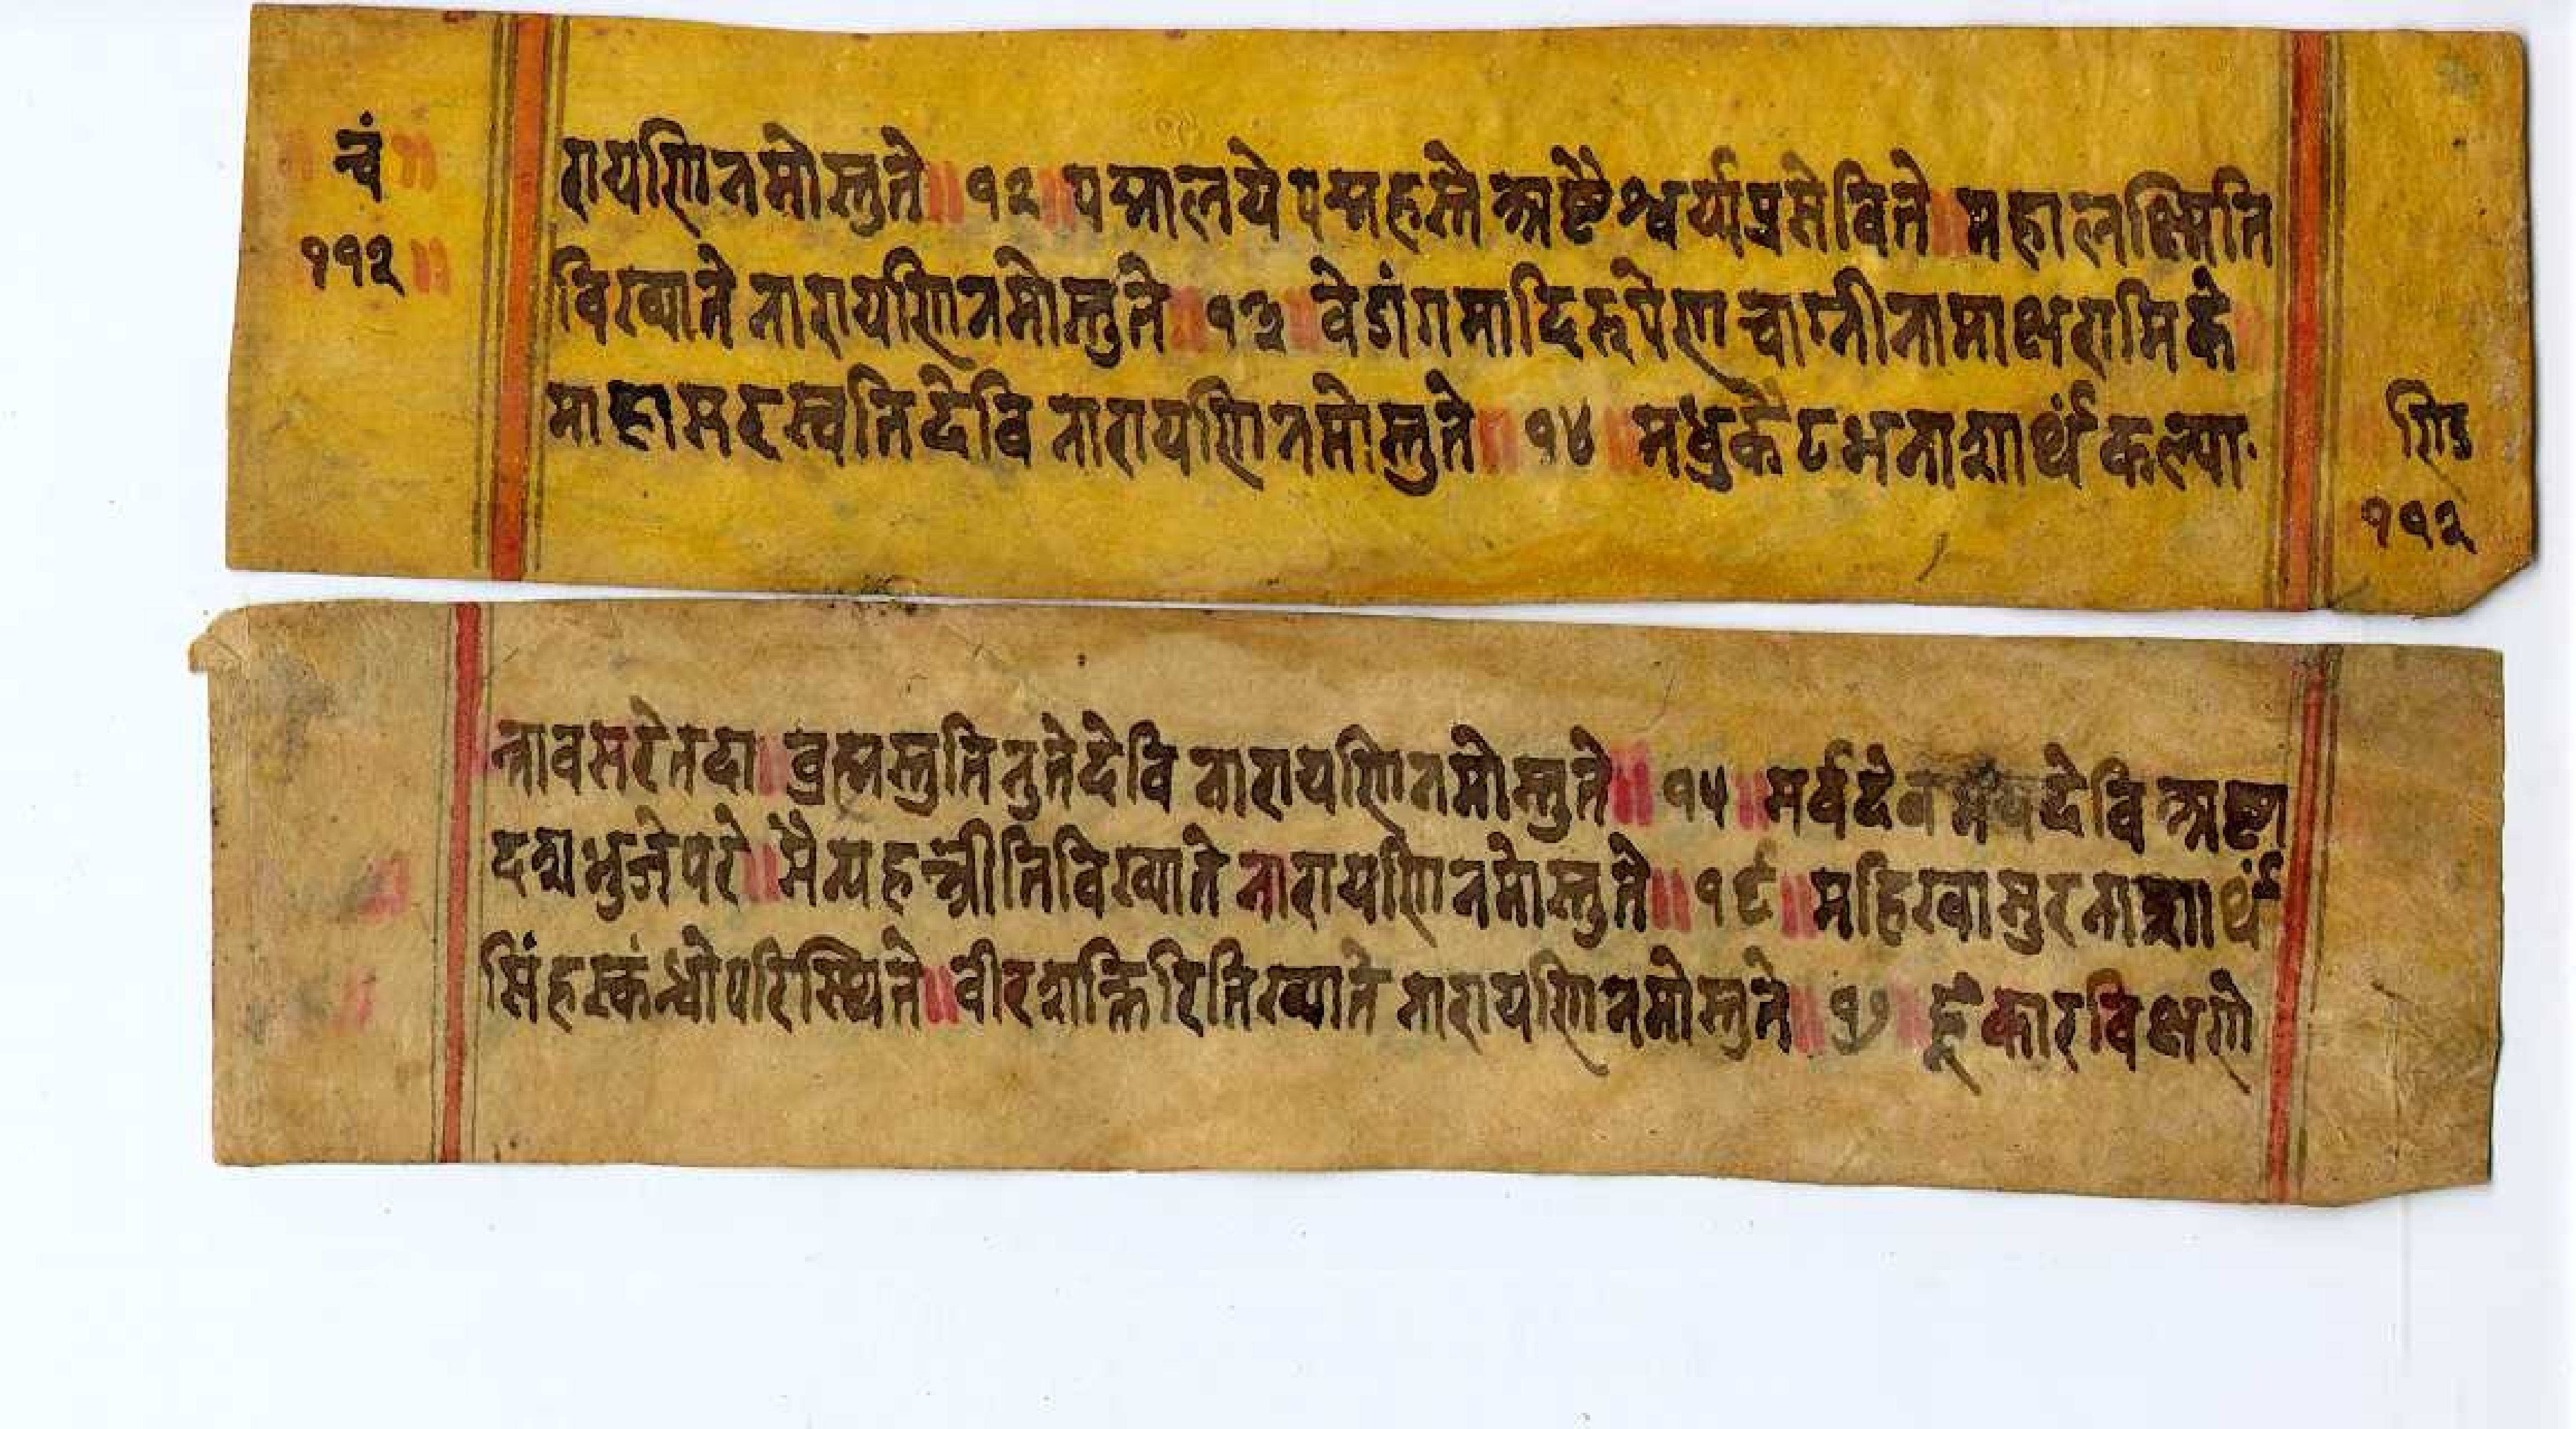 चं॥
११२॥
रायणि नमोस्तुते॥ १२॥ पद्मालये पद्महस्ते अष्टैश्वर्य्यप्रसेविते॥ महालक्ष्मिति
विख्याते नारायणि नमोस्तुते॥ १३॥ वेडांगमादिरूपेण चाग्नीनामाक्षरामिके॥
माहासरस्वति देवि नारायणि नमोस्तुते॥ १४॥ मधुकैटभनाशार्थं कल्पा
११२
न्तावसरे तदा॥ ब्रह्मस्तुति नुते देवि नारायणि नमोस्तुते॥ १५॥ सर्वदेव देवि अष्टा
दश भुजे परे॥ सैन्यहन्त्रीति विख्याते नारायणि नमोस्तुते॥ १६॥ महिखासुरनाशार्थं
सिंहस्कंन्धोपरिस्थिते॥ वीरशक्तिरिति ख्याते नारायणि नमोस्तुते॥ १७॥ हूँकारविक्षणे